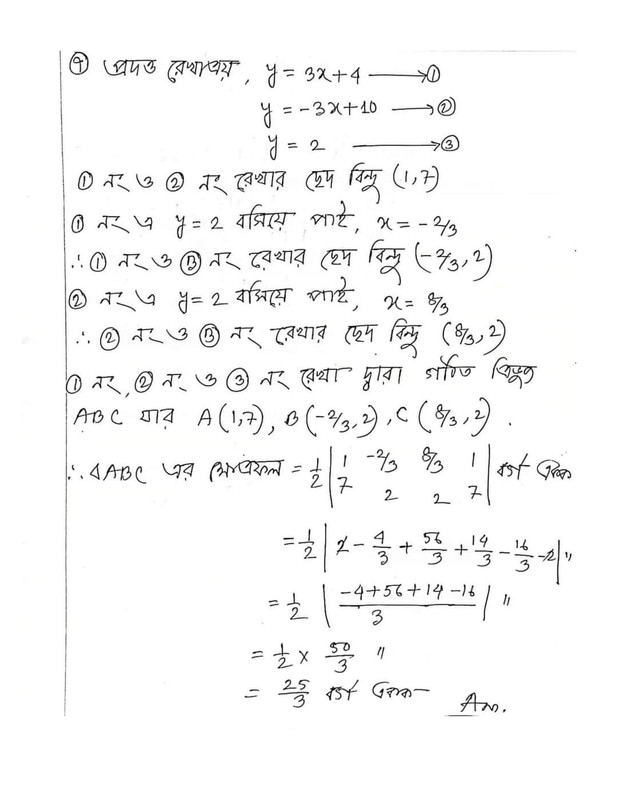 ৭ প্রদত্ত রেখাত্রয়, y = 3x+4 ⟶ ①
y = -3x+10 ⟶ ②
y = 2 ⟶ ③
① নং ও ② নং রেখার ছেদ বিন্দু (1,7)
① নং এ y = 2 বসিয়ে পাই, x = -2/3
∴ ① নং ও ③ নং রেখার ছেদ বিন্দু (-2/3, 2)
② নং এ y = 2 বসিয়ে পাই, x = 8/3
∴ ② নং ও ③ নং রেখার ছেদ বিন্দু (8/3, 2)
① নং, ② নং ও ③ নং রেখা দ্বারা গঠিত ত্রিভুজ
ABC যার A(1,7), B(-2/3, 2), C(8/3, 2).
∴ ΔABC এর ক্ষেত্রফল = 1/2 | 1 -2/3 8/3 1 | বর্গ একক
7 2 2 7
= 1/2 | 2 - 4/3 + 56/3 + 14/3 - 16/3 - 2 | "
= 1/2 | (-4+56+14-16)/3 | "
= 1/2 × 50/3 "
= 25/3 বর্গ একক Ans.